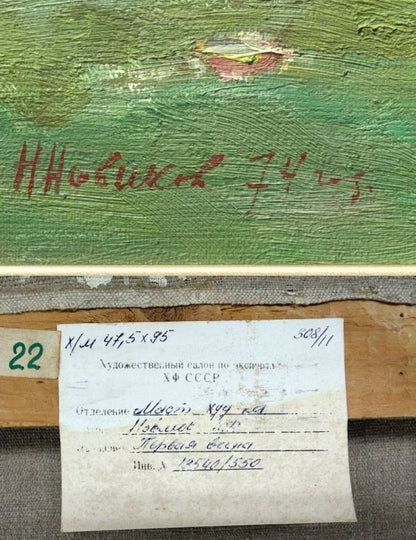 ННовиков 74 год.
22
Х/М 47,5 х 95
308/11
Художественный салон по экспорту
ХФ СССР
Отделение Маст. худ-ка
Первая весна
Инв. № 12540/550